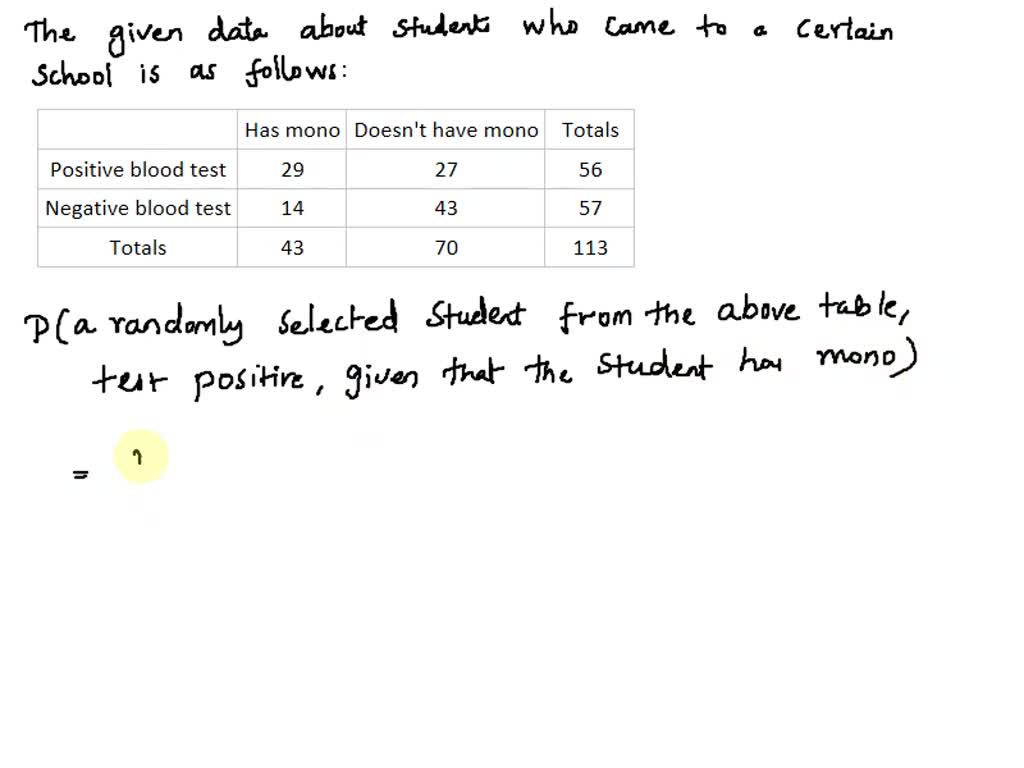 The given data about students who came to a certain
School is as follows:
Has mono Doesn't have mono Totals
Positive blood test 29 27 56
Negative blood test 14 43 57
Totals 43 70 113
P(a randomly selected student from the above table,
test positive, given that the student has mono)
=